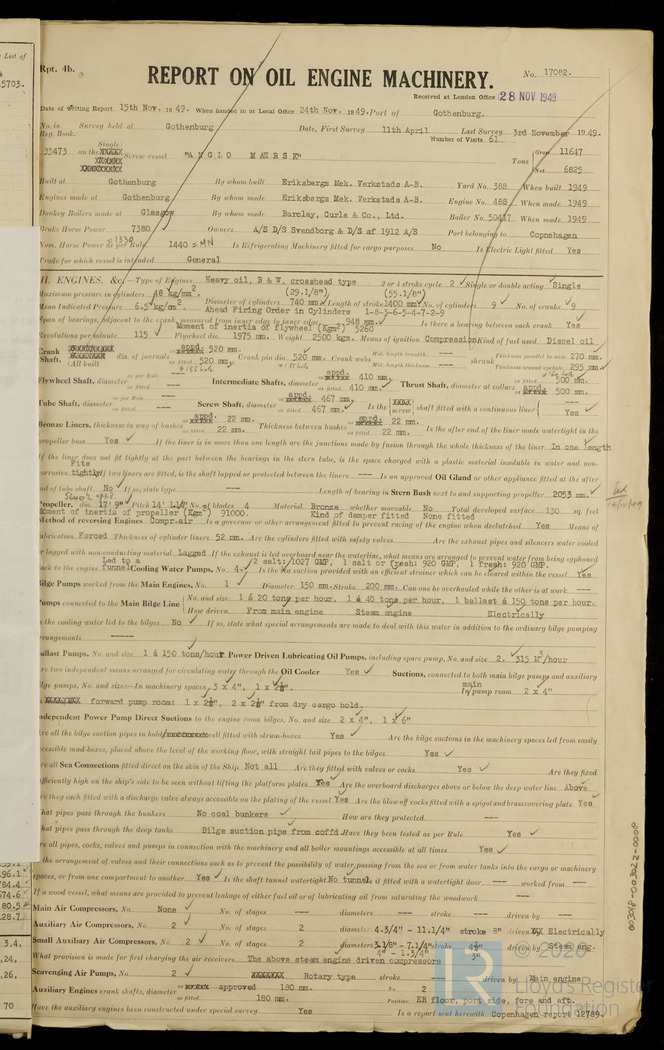 List of
5703.
Rpt. 4b.
No. 17082.
REPORT ON OIL ENGINE MACHINERY.
Received at London Office 28 NOV 1949
Date of writing Report 15th Nov. 1949. When handed in at Local Office 24th Nov. 1949. Port of Gothenburg.
No. in Reg. Book. Survey held at Gothenburg Date, First Survey 11th April Last Survey 3rd November 1949.
Number of Visits 61
35473 on the Single Screw vessel "ANGLO MÆRSK" Tons Gross 11647 Net 6825
Built at Gothenburg By whom built Eriksbergs Mek. Verkstads A-B. Yard No. 388 When built 1949
Engines made at Gothenburg By whom made Eriksbergs Mek. Verkstads A-B. Engine No. 488 When made 1949
Donkey Boilers made at Glasgow By whom made Barclay, Curle & Co., Ltd. Boiler No. 50417 When made 1949
Brake Horse Power 7380 Owners A/S D/S Svendborg & D/S af 1912 A/S Port belonging to Copnehagen
Nom. Horse Power as per Rule 1440 = MN Is Refrigerating Machinery fitted for cargo purposes No Is Electric Light fitted Yes
Trade for which vessel is intended General
OIL ENGINES, &c. Type of Engines Heavy oil, B & W, crosshead type 2 or 4 stroke cycle 2 Single or double acting Single
Maximum pressure in cylinders 48 kg/cm2 Diameter of cylinders 740 mm. (29.1/8") Length of stroke 1400 mm. (55.1/8") No. of cylinders 9 No. of cranks 9
Mean Indicated Pressure 6.5 kg/cm2 Ahead Firing Order in Cylinders 1-8-3-6-5-4-7-2-9
Span of bearings, adjacent to the crank, measured from inner edge to inner edge 948 mm. Is there a bearing between each crank Yes
Moment of inertia of flywheel (Kgm2) 5260
Revolutions per minute 115 Flywheel dia. 1975 mm. Weight 2500 kgs. Means of ignition Compression Kind of fuel used Diesel oil
Crank Shaft, All built dia. of journals appd. 520 mm. as fitted 520 mm. Crank pin dia. 520 mm. Crank webs Mid. length breadth --- Mid. length thickness --- shrunk Thickness parallel to axis 270 mm. Thickness around eyehole 295 mm.
Flywheel Shaft, diameter as per Rule --- as fitted --- Intermediate Shafts, diameter appd. 410 mm. as fitted 410 mm. Thrust Shaft, diameter at collars appd. 500 mm. as fitted 500 mm.
Tube Shaft, diameter as per Rule --- as fitted --- Screw Shaft, diameter appd. 467 mm. as fitted 467 mm. Is the screw shaft fitted with a continuous liner Yes
Bronze Liners, thickness in way of bushes appd. 22 mm. as fitted 22 mm. Thickness between bushes appd. 22 mm. as fitted 22 mm. Is the after end of the liner made watertight in the
propeller boss Yes If the liner is in more than one length are the junctions made by fusion through the whole thickness of the liner In one length
If the liner does not fit tightly at the part between the bearings in the stern tube, is the space charged with a plastic material insoluble in water and non-
corrosive Fits tightly If two liners are fitted, is the shaft lapped or protected between the liners --- Is an approved Oil Gland or other appliance fitted at the after
end of tube shaft No If so, state type --- Length of bearing in Stern Bush next to and supporting propeller 2053 mm.
Propeller, dia. 17' 9" Pitch No. of blades 4 Material Bronse whether moveable No Total developed surface 130 sq. feet
Moment of inertia of propeller (Kgm2) 91000. Kind of damper fitted None fitted
Method of reversing Engines Compr. air Is a governor or other arrangement fitted to prevent racing of the engine when declutched Yes Means of
lubrication Forced Thickness of cylinder liners 52 mm. Are the cylinders fitted with safety valves Are the exhaust pipes and silencers water cooled
or lagged with non-conducting material Lagged If the exhaust is led overboard near the waterline, what means are arranged to prevent water from being syphoned
back to the engine Led to a funnel Cooling Water Pumps, No. 4. 2 salt: 1027 GMP, 1 salt or fresh: 920 GMP, 1 fresh: 920 GMP. Is the sea suction provided with an efficient strainer which can be cleared within the vessel Yes
Bilge Pumps worked from the Main Engines, No. 1 Diameter 150 mm. Stroke 200 mm. Can one be overhauled while the other is at work ---
Pumps connected to the Main Bilge Line No. and size 1 á 20 tons per hour. 1 á 40 tons per hour. 1 ballast á 150 tons per hour.
How driven From main engine Steam engine Electrically
Is the cooling water led to the bilges No If so, state what special arrangements are made to deal with this water in addition to the ordinary bilge pumping
arrangements ---
Ballast Pumps, No. and size 1 á 150 tons/hour Power Driven Lubricating Oil Pumps, including spare pump, No. and size 2. 315 M3/hour
Are two independent means arranged for circulating water through the Oil Cooler Yes Suctions, connected to both main bilge pumps and auxiliary
bilge pumps, No. and size:—In machinery spaces 3 x 4", 1 x 2½". In main pump room 2 x 4"
forward pump room: 1 x 2½", 2 x 2½" from dry cargo hold.
Independent Power Pump Direct Suctions to the engine room bilges, No. and size 2 x 4", 1 x 6"
Are all the bilge suction pipes in hold well fitted with strum-boxes Yes Are the bilge suctions in the machinery spaces led from easily
accessible mud-boxes, placed above the level of the working floor, with straight tail pipes to the bilges Yes
Are all Sea Connections fitted direct on the skin of the Ship Not all Are they fitted with valves or cocks Yes Are they fixed
sufficiently high on the ship's side to be seen without lifting the platform plates Yes Are the overboard discharges above or below the deep water line Above
Are they each fitted with a discharge valve always accessible on the plating of the vessel Yes Are the blow off cocks fitted with a spigot and brass covering plate Yes
What pipes pass through the bunkers No coal bunkers How are they protected ---
What pipes pass through the deep tanks Bilge suction pipe from coffd. Have they been tested as per Rule Yes
Are all pipes, cocks, valves and pumps in connection with the machinery and all boiler mountings accessible at all times Yes
Is the arrangement of valves and their connections such as to prevent the possibility of water passing from the sea or from water tanks into the cargo or machinery
spaces, or from one compartment to another Yes Is the shaft tunnel watertight No tunnel. Is it fitted with a watertight door --- worked from ---
If a wood vessel, what means are provided to prevent leakage of either fuel oil or of lubricating oil from saturating the woodwork ---
Main Air Compressors, No. None No. of stages --- diameters --- stroke --- driven by ---
Auxiliary Air Compressors, No. 2 No. of stages 2 diameters 4.3/4" - 11.1/4" stroke 8" driven Electrically
Small Auxiliary Air Compressors, No. 2 No. of stages 2 diameters 3.1/8" - 7.1/4" stroke 4½" driven by Steam eng.
4" - 1.3/4" 3"
What provision is made for first charging the air receivers The above steam engine driven compressors
Scavenging Air Pumps, No. 2 Rotary type stroke --- driven by Main engine
Auxiliary Engines crank shafts, diameter approved 180 mm. as fitted 180 mm. No. 2 Position ER floor, port side, fore and aft.
Have the auxiliary engines been constructed under special survey Yes Is a report sent herewith Copenhagen report 12789.
003018-003022-0008
96.1
784.4
574.6
80.5
28.7
3.4.
.24.
.26.
70
© 2020
Lloyd's Register
Foundation